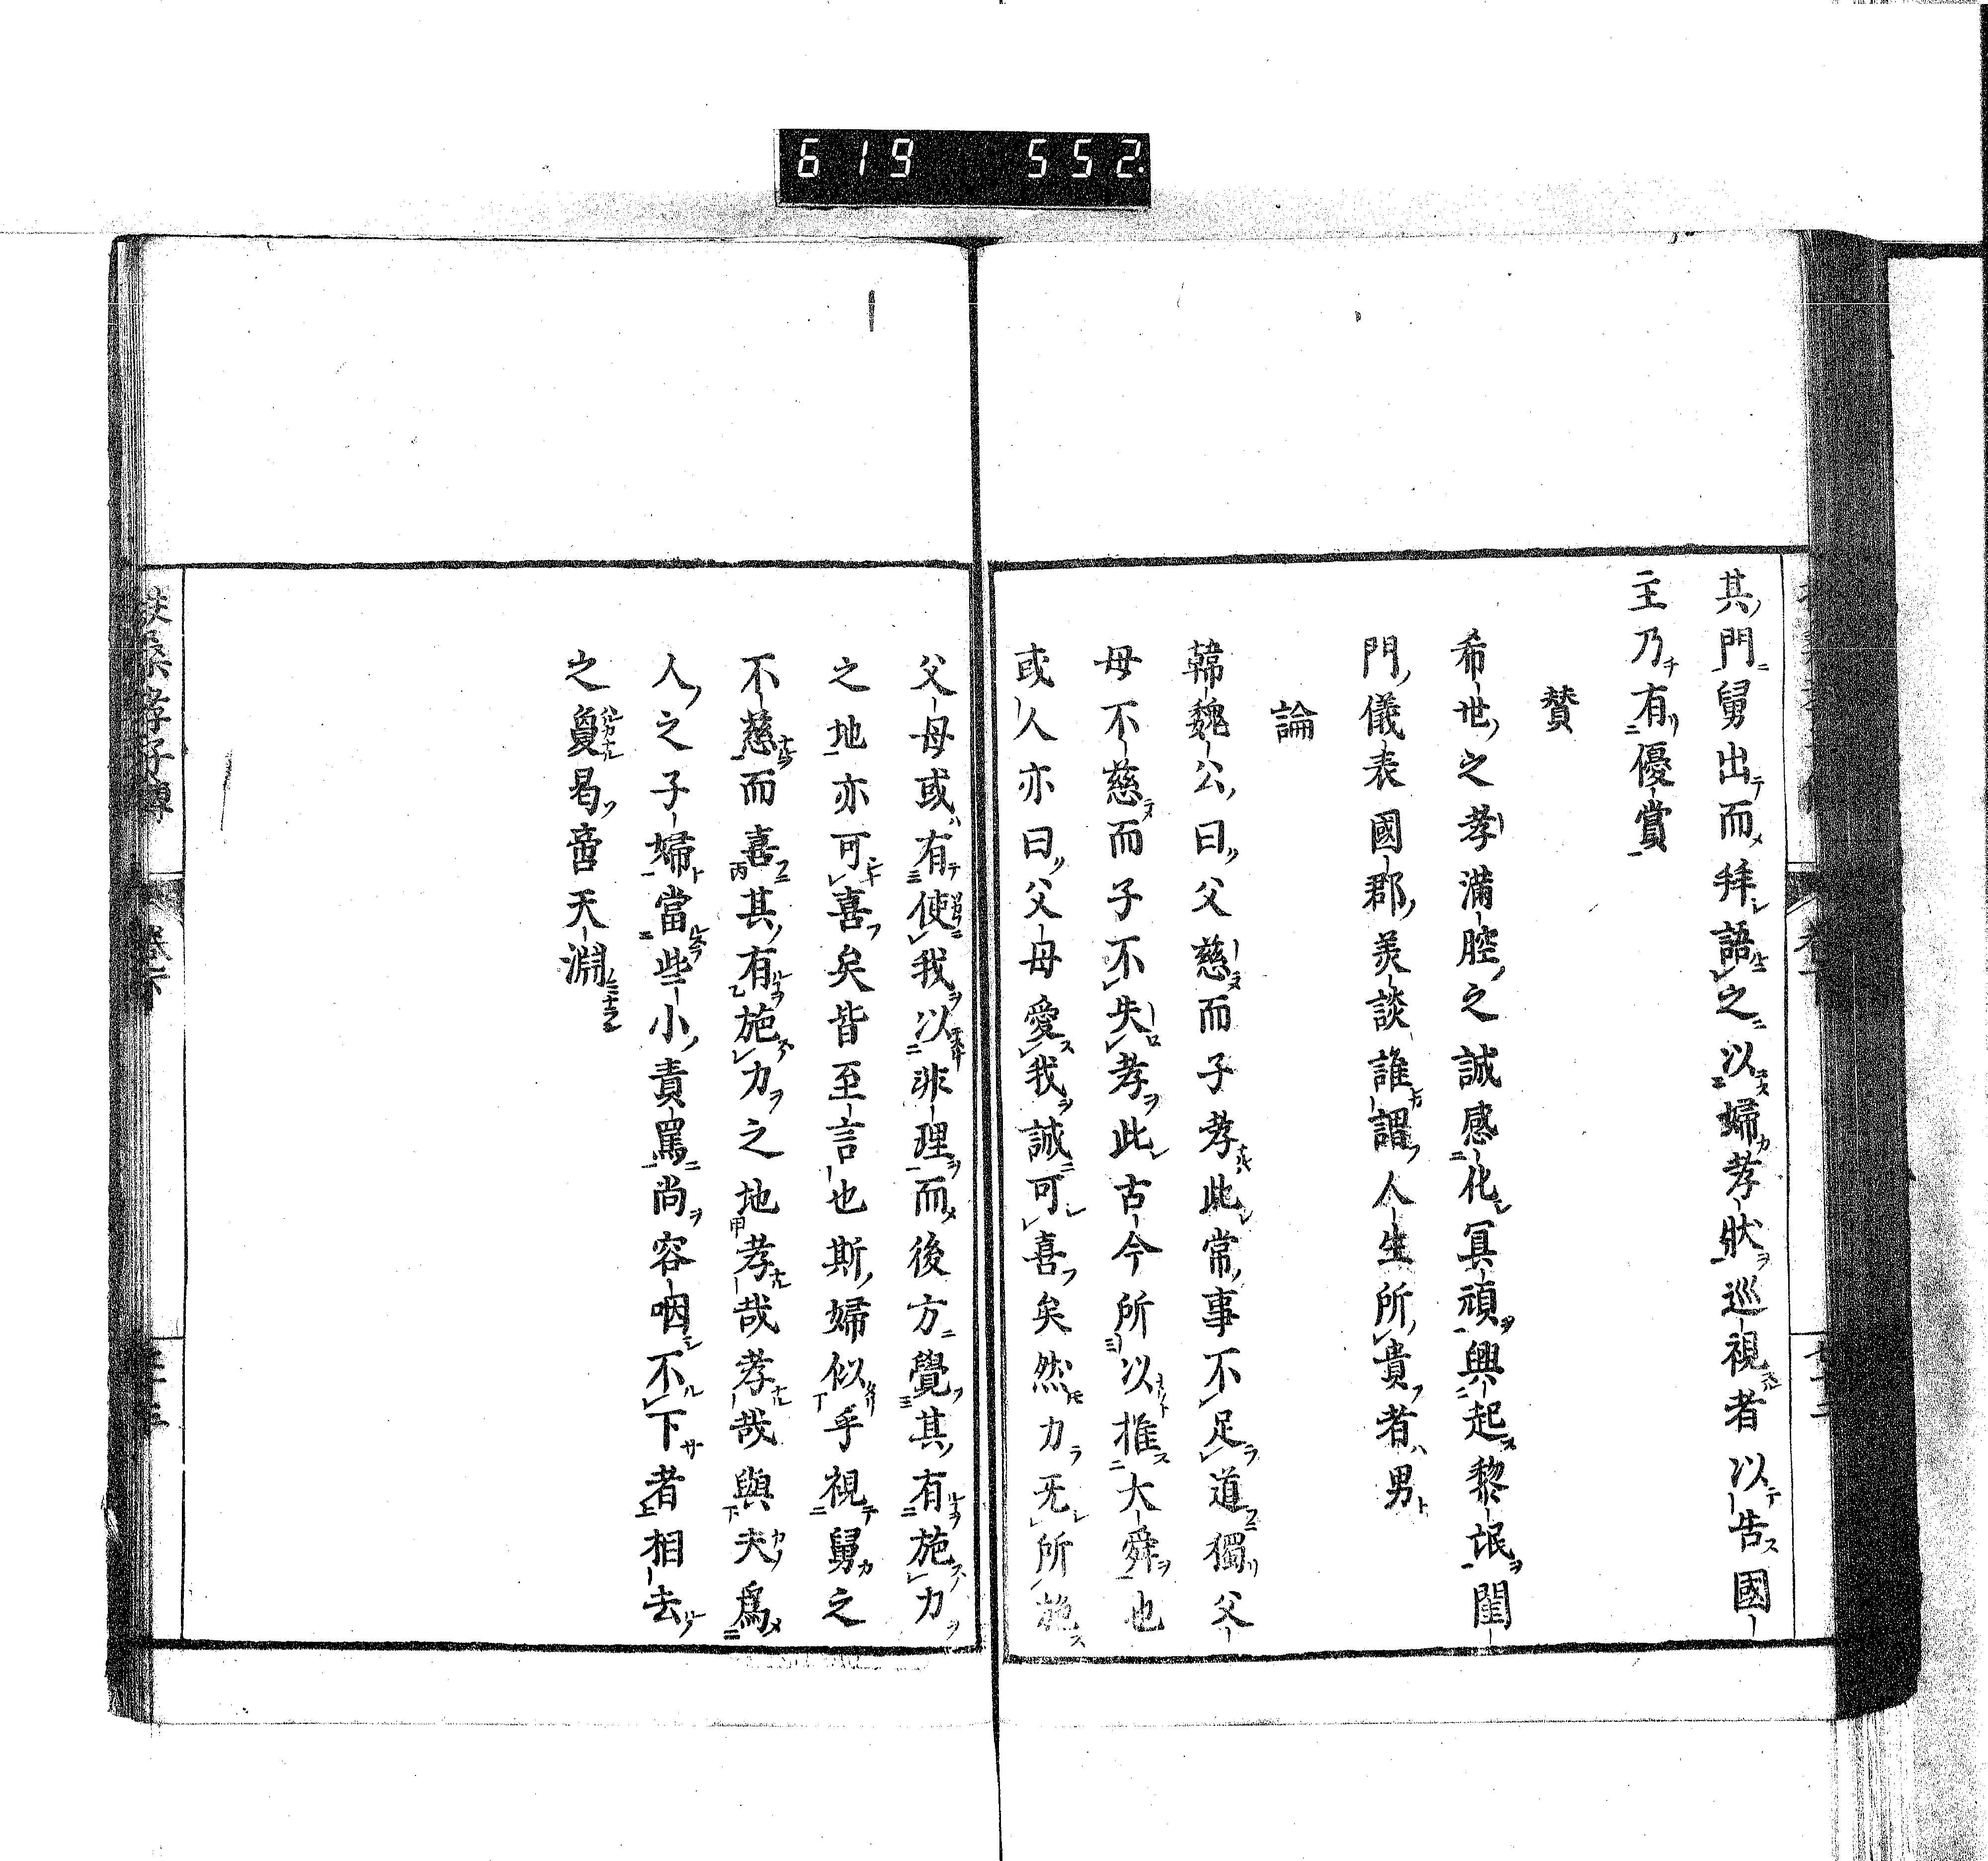 619 552
其門舅出而拜語之以婦孝狀巡視者以告國
主乃有優賞
賛
希世之孝滿腔之誠感化冥頑興起黎氓閨
門儀表國郡羙談誰謂人生所貴者男
論
韓魏公曰父慈而子孝此常事不足道獨父
母不慈而子不失孝此古今所以推大舜也
或人亦曰父母愛我誠可喜矣然力无所施
父母或有使我以非理而後方覺其有施力
之地亦可喜矣皆至言也斯婦似乎視舅之
不慈而喜其有施力之地孝哉孝哉與夫爲
人之子婦當些小責罵尚容咽不下者相去
之敻曷啻天淵
扶桑孝子傳 卷下